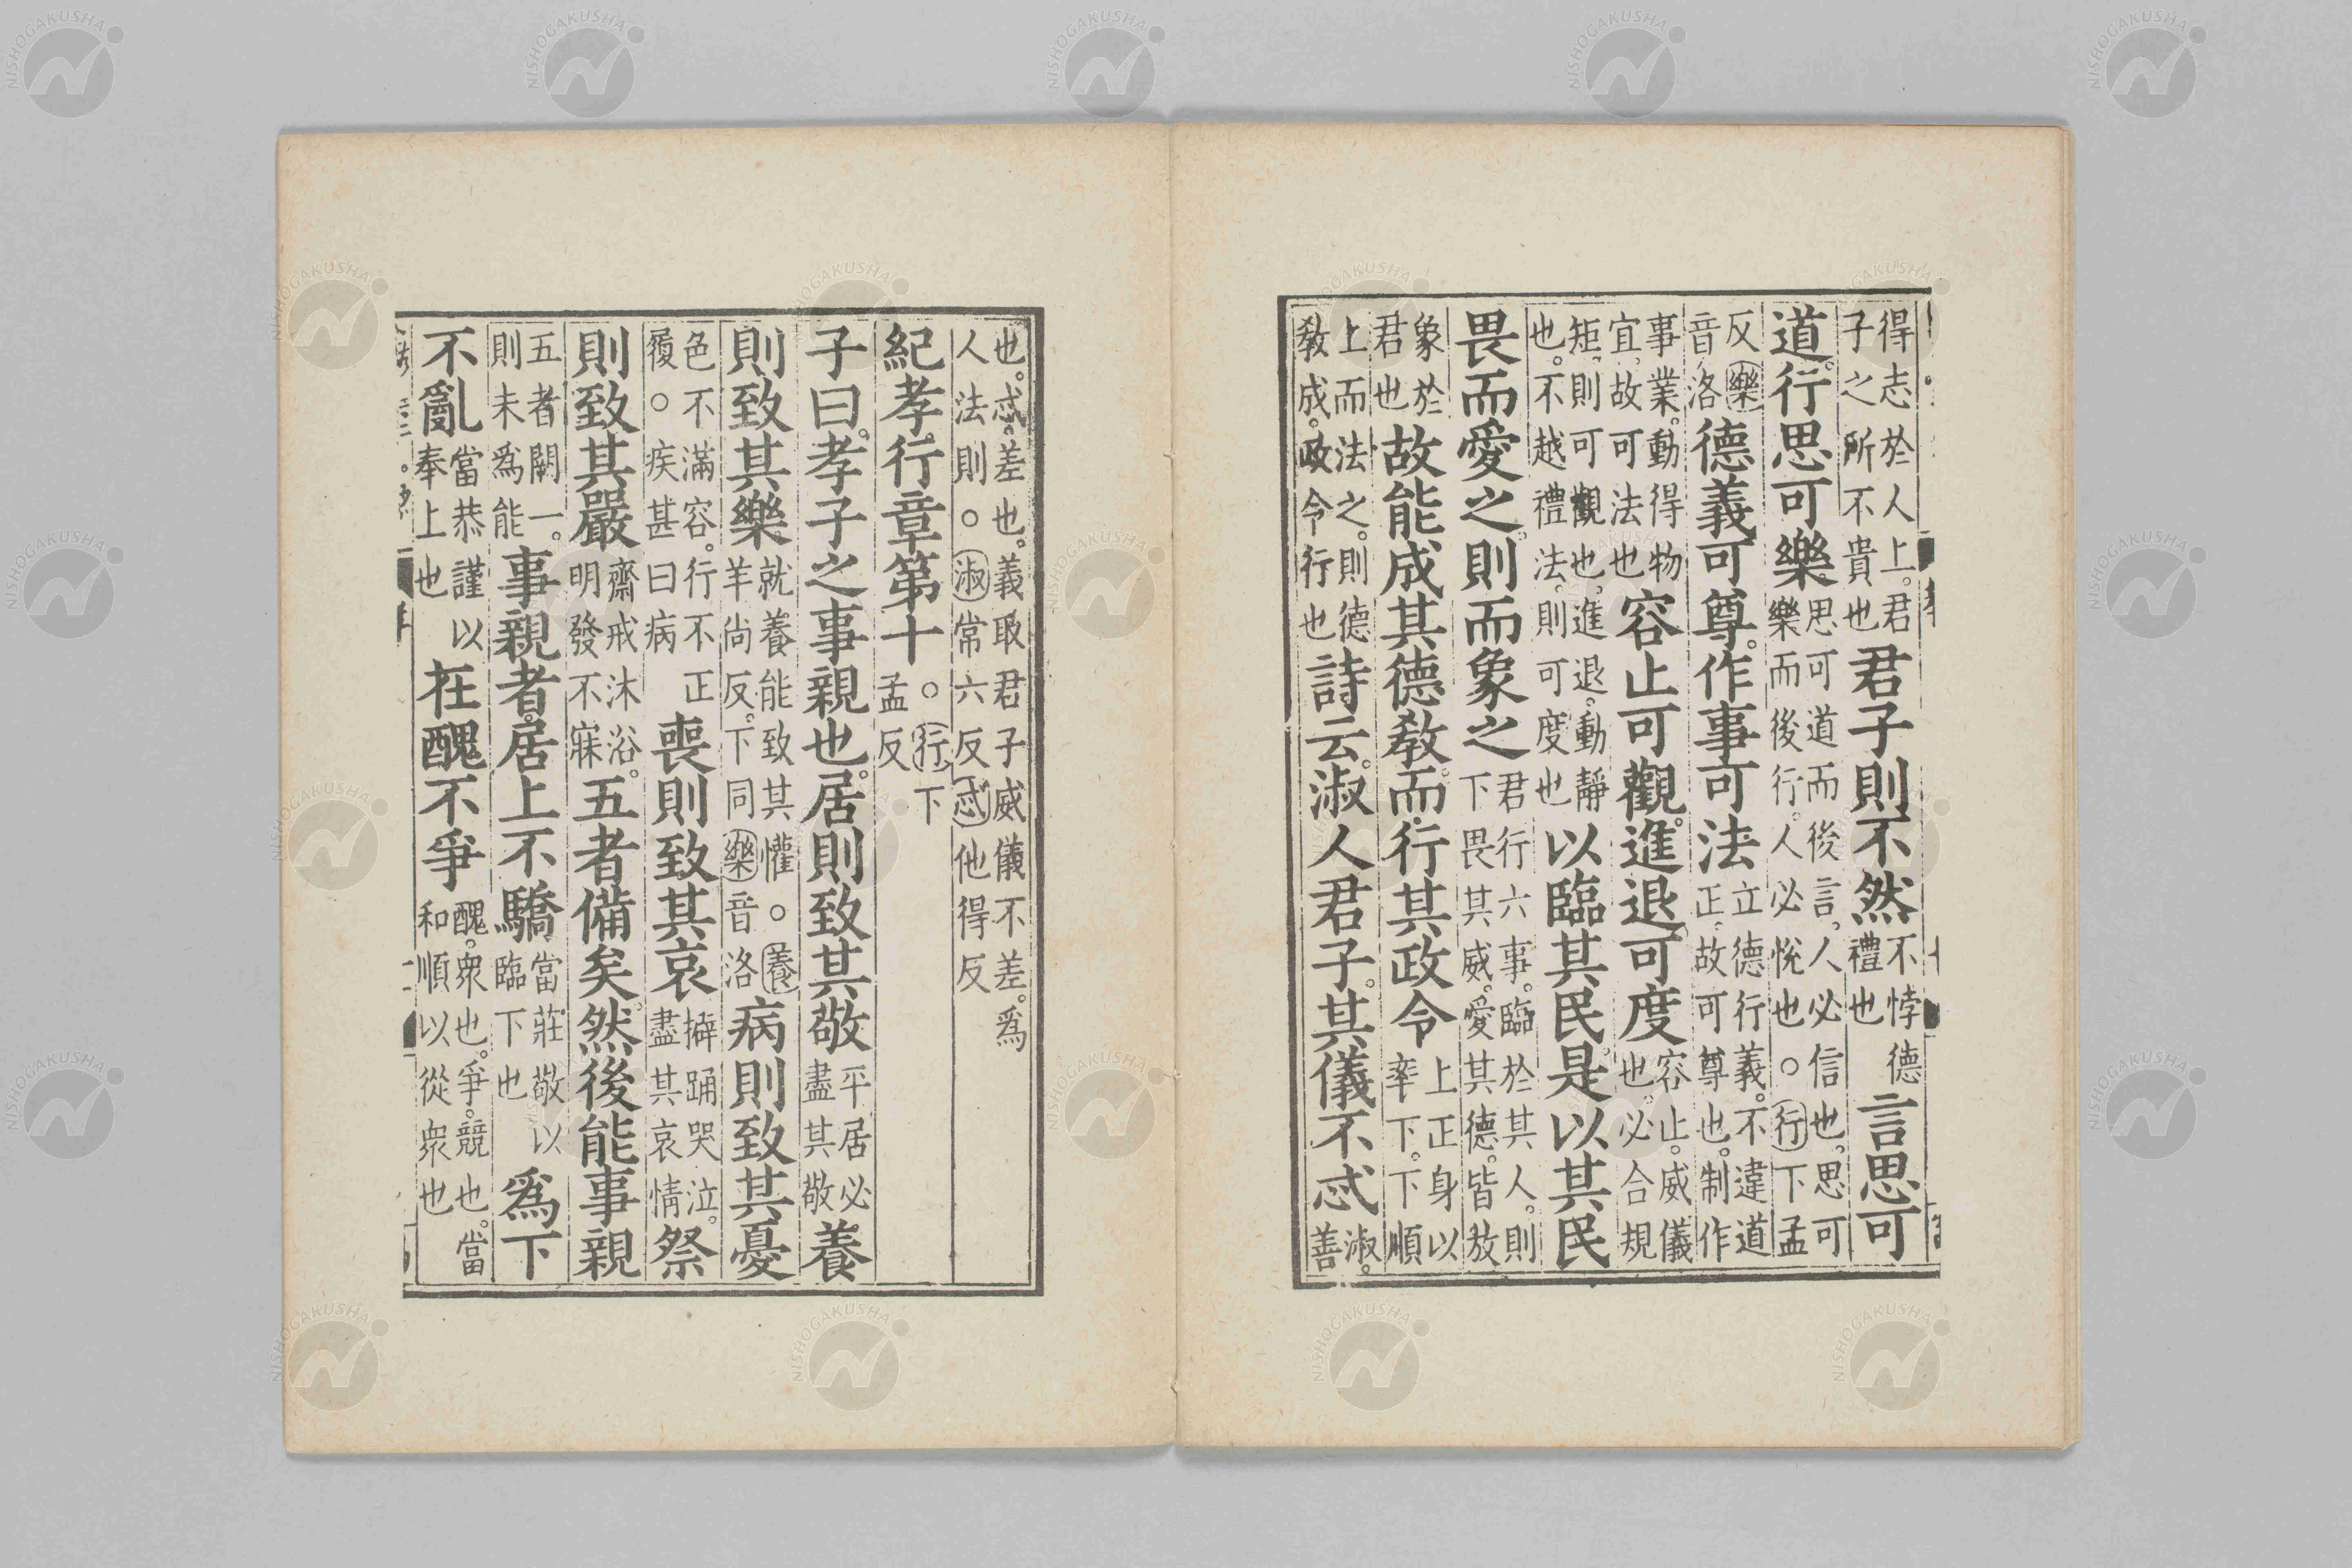 得志於人上。君
子之所不貴也
君子則不然
不悖德
禮也
言思可
道。行思可樂
思可道而後言、人必信也、思可
樂而後行。人必悅也○行下孟
反樂
音洛
德義可尊。作事可法
立德行義。不違道
正、故可尊也。制作
事業。動得物
宜、故可法也
容止可觀。進退可度
容止。威儀
也。必合規
矩、則可觀也、進退。動靜
也。不越禮法、則可度也
以臨其民。是以其民
畏而愛之。則而象之
君行六事。臨於其人。則
下畏其威。愛其德。皆放
象於
君也
故能成其德教。而行其政令
上正身以
率下。下順
上而法之。則德
教成。政令行也
詩云。淑人君子。其儀不忒
淑。
善
也。忒。差也。義取君子威儀不差。為
人法則○淑常六反忒他得反
紀孝行章第十
○行、下
孟反
子曰。孝子之事親也。居則致其敬
平居必
盡其敬
養
則致其樂
就養能致其懽○養
羊尚反。下同樂音洛
病則致其憂
色不滿容。行不正
履○疾甚曰病
喪則致其哀
擗踊哭泣。
盡其哀情
祭
則致其嚴
齋戒沐浴。
明發不寐
五者備矣。然後能事親
五者闕一。
則未為能
事親者。居上不驕
當莊敬以
臨下也
為下
不亂
當恭謹以
奉上也
在醜不爭
醜。衆也。爭。競也。當
和順以從衆也